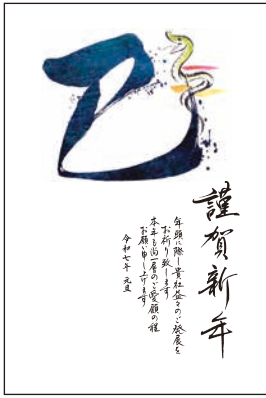 巳
謹賀新年
年頭に際し貴社益々のご発展を
お祈り致します
本年も尚一層のご愛顧の程
お願い申し上げます
令和七年 元旦